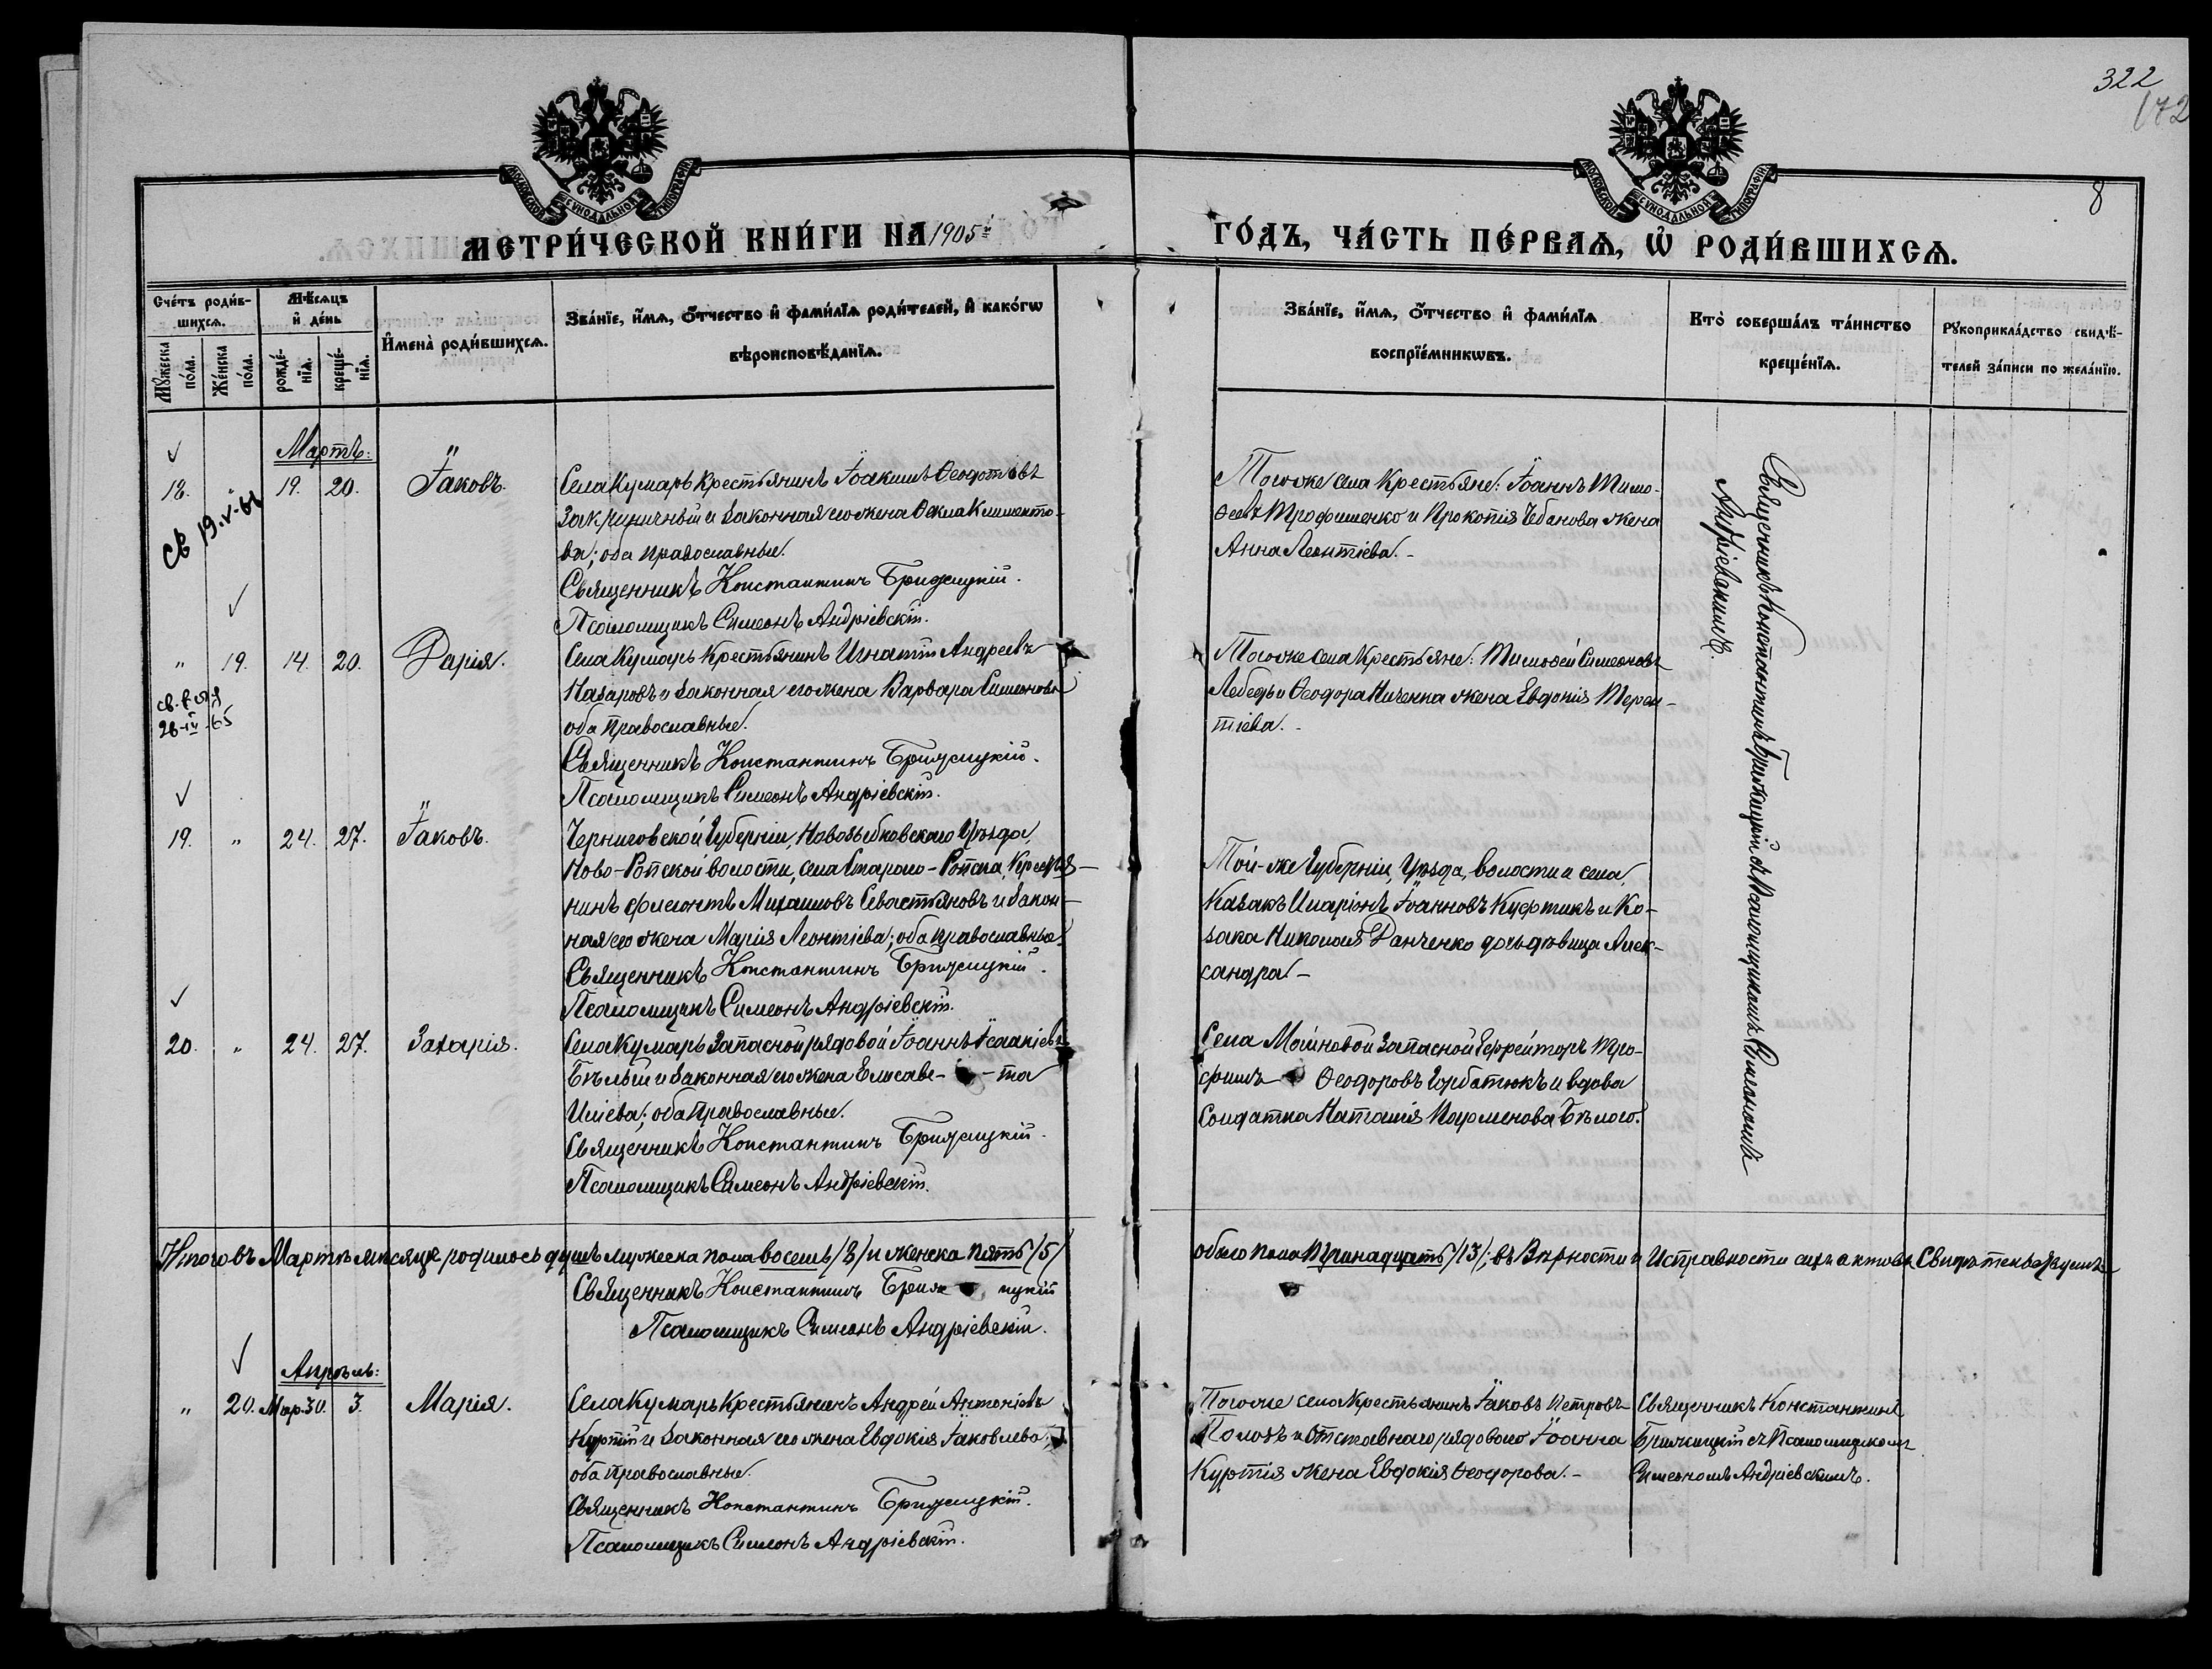 322
172
8
МОСКОВСКОЙ СѴНОДАЛЬНОЙ ТИПОГРАФІИ
МОСКОВСКОЙ СѴНОДАЛЬНОЙ ТИПОГРАФІИ
МЕТРИ́ЧЕСКОЙ КНИ́ГИ НА 1905й
ГО́ДЪ, ЧА́СТЬ ПЕ́РВАѦ, Ѡ҆ РОДИ́ВШИХСѦ.
Сче́тъ роди́в-
шихсѧ.
Мѣ́сѧцъ
и҆ де́нь
Мꙋ́жеска
по́ла.
Же́нска
по́ла.
рожде́-
нїѧ.
креще́-
нїѧ.
И҆мена̀ роди́вшихсѧ.
Зва́нїе, и҆́мѧ, ѻ҆́тчество и҆ фами́лїѧ роди́телей, и҆ како́гѡ
вѣроисповѣ́данїѧ.
Зва́нїе, и҆́мѧ, ѻ҆́тчество и҆ фами́лїѧ
воспрїе́мникѡвъ.
Кто̀ соверша́лъ та́инство
креще́нїѧ.
Рꙋкоприкла́дство свидѣ́-
телей за́писи по жела́нїю.
Мартъ:
18. 19. 20. Іаковъ.
Села Кумарь Крестьянинъ Іоакимъ Ѳеодотовъ
Закриничный и законная его жена Ѳекла Клименто-
ва; оба православные.
Священникъ Константинъ Брижицкій.
Псаломщикъ Симеонъ Андріевскій.
Того же села Крестьяне: Іоаннъ Тимо-
ѳеевъ Трофименко и Прокопія Чебанова жена
Анна Леонтіева.-
Священникъ Константинъ Брижицкій съ Псаломщикомъ Симеономъ
Андріевскимъ.
св 19.V-61
" 19. 14. 20. Дарія.
Села Кумарь Крестьянинъ Игнатій Андреевъ
Назаровъ и законная его жена Варвара Симеонова
оба православные.
Священникъ Константинъ Брижицкій.
Псаломщикъ Симеонъ Андріевскій.
Того же села Крестьяне: Тимоѳей Симеоновъ
Лебедь и Ѳеодора Ниченка жена Евдокія Терен-
тіева.-
26-IV-65
19. " 24. 27. Іаковъ.
Черниговской Губерніи, Новозыбковскаго Уѣзда,
Ново-Ропской волости, села Стараго-Ропска, Крестья-
нинъ Филиппъ Михаиловъ Севастьяновъ и закон-
ная его жена Марія Леонтіева; оба православные.
Священникъ Константинъ Брижицкій.
Псаломщикъ Симеонъ Андріевскій.
Той-же Губерніи, Уѣзда, волости и села,
Казакъ Иларіонъ Іоанновъ Куфтикъ и Ко-
зака Николая Данченко дочь дѣвица Алек-
сандра.-
20. " 24. 27. Захарія.
Села Кумарь Запасной рядовой Іоаннъ Ісаакіевъ
Бѣлый и законная его жена Елисаве- -та
Иліева; оба православные.
Священникъ Константинъ Брижицкій.
Псаломщикъ Симеонъ Андріевскій.
Села Мойновой Запасной Ефрейторъ Тро-
фимъ Ѳеодоровъ Горбатюкъ и вдова
Солдатка Наталія Парменова Бѣлого.
Итого въ Мартѣ мѣсяцѣ родилось душъ мужеска пола восемь /8/ и женска пять /5/
обоего пола тринадцать /13/; въ вѣрности и исправности сихъ актовъ Свидѣтельствуемъ
Священникъ Константинъ Бриж ицкій
Псаломщикъ Симеонъ Андріевскій.
Апрѣль:
" 20. Мар.30. 3. Марія.
Села Кумарь Крестьянинъ Андрей Антоніевъ
Куртій и законная его жена Евдокія Іаковлева;
оба православные.
Священникъ Константинъ Брижицкій.
Псаломщикъ Симеонъ Андріевскій.
Того же села Крестьянинъ Іаковъ Петровъ
Полозъ и отставнаго рядового Іоанна
Куртія жена Евдокія Ѳеодорова.-
Священникъ Константинъ
Брижицкій съ Псаломщикомъ
Симеономъ Андріевскимъ.